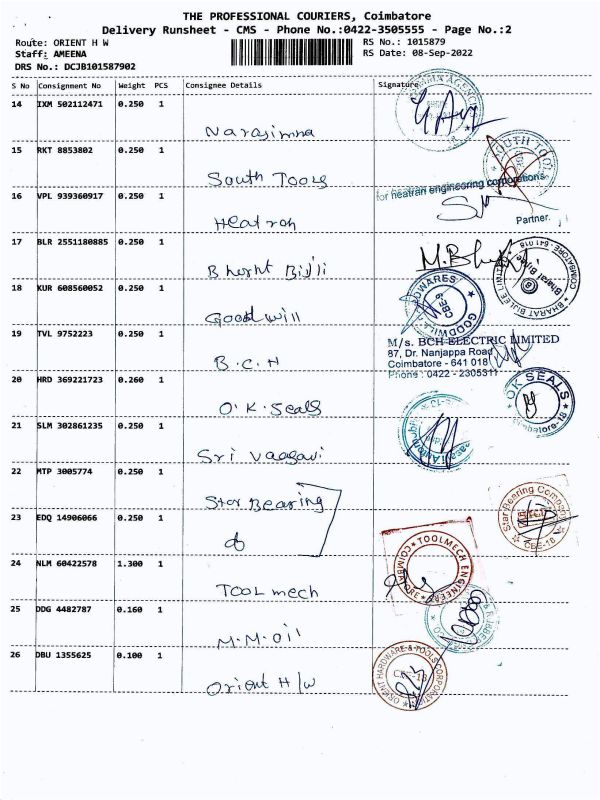 THE PROFESSIONAL COURIERS, Coimbatore
Delivery Runsheet - CMS - Phone No.:0422-3505555 - Page No.:2
Route: ORIENT H W
Staff: AMEENA
DRS No.: DCJB101587902
RS No.: 1015879
RS Date: 08-Sep-2022
S No Consignment No Weight PCS Consignee Details Signature
14 IXM 502112471 0.250 1
Narasimha
15 RKT 8853802 0.250 1
South Tools
SOUTH TOOLS
16 VPL 939360917 0.250 1
for heatran engineering corporations
Heatran
Partner.
17 BLR 2551180885 0.250 1
Bharat Bijli
M.Bh
BHARAT BIJLEE LIMITED
COIMBATORE - 641 018
Bharat Bijlee
18 KUR 608560052 0.250 1
Good will
GOODWILL
CBE-9
19 TVL 9752223 0.250 1
M/s. BCH ELECTRIC LIMITED
87, Dr. Nanjappa Road
Coimbatore - 641 018
Phone : 0422 - 2305311
B.C.H
20 HRD 369221723 0.260 1
O.K. Seals
OK SEALS
Coimbatore-18
21 SLM 302861235 0.250 1
Sri Vaagavi
22 MTP 3005774 0.250 1
Star Bearing
23 EDQ 14906066 0.250 1
Star Bearing Company
CBE-18
24 NLM 60422578 1.300 1
Toolmech
TOOLMECH ENGINEERS
COIMBATORE
25 DDG 4482787 0.160 1
M.M.Oil
26 DBU 1355625 0.100 1
Orient H/W
ORIENT HARDWARE & TOOLS CORPORATION
CBE-18